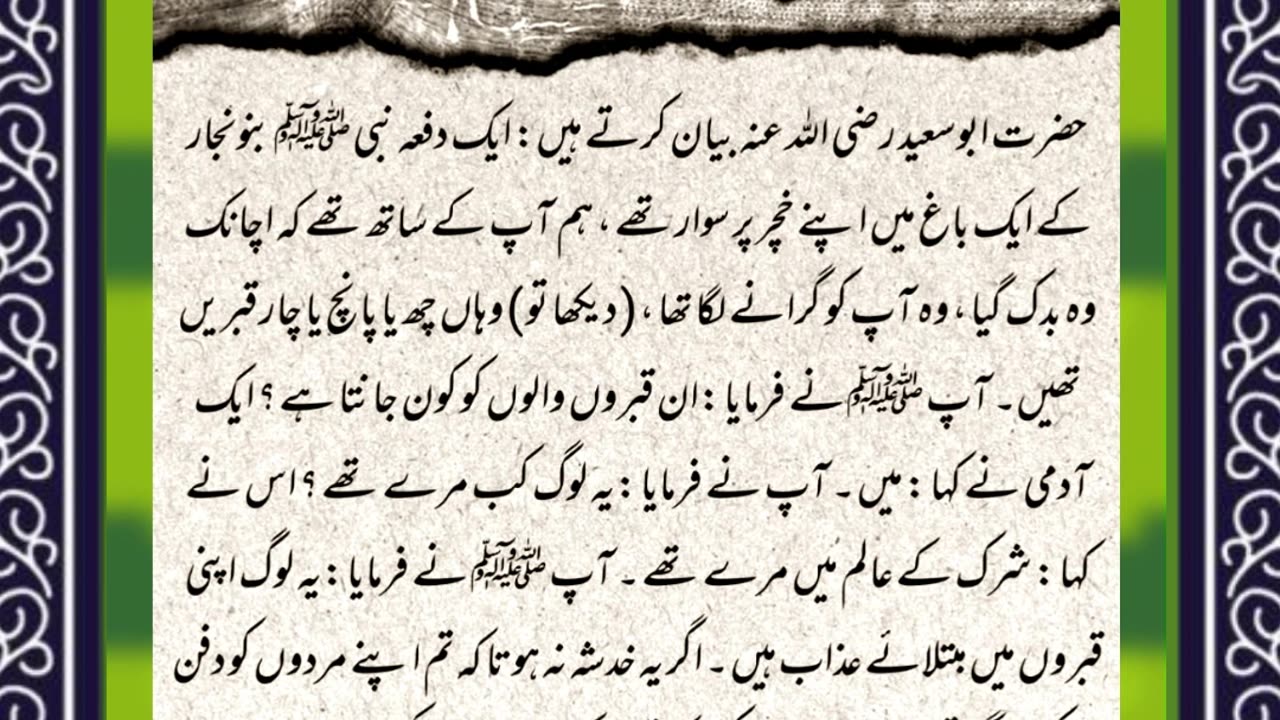 حضرت ابوسعید رضی اللہ عنہ بیان کرتے ہیں : ایک دفعہ نبی ﷺ بنونجار
کے ایک باغ میں اپنے خچر پر سوار تھے ، ہم آپ کے ساتھ تھے کہ اچانک
وہ بدک گیا ، وہ آپ کو گرانے لگا تھا ، (دیکھا تو) وہاں چھ یا پانچ یا چار قبریں
تھیں ۔ آپ ﷺ نے فرمایا : ان قبروں والوں کو کون جانتا ہے ؟ ایک
آدمی نے کہا : میں ۔ آپ نے فرمایا : یہ لوگ کب مرے تھے ؟ اس نے
کہا : شرک کے عالم میں مرے تھے ۔ آپ ﷺ نے فرمایا : یہ لوگ اپنی
قبروں میں مبتلائے عذاب ہیں ۔ اگر یہ خدشہ نہ ہوتا کہ تم اپنے مردوں کو دفن